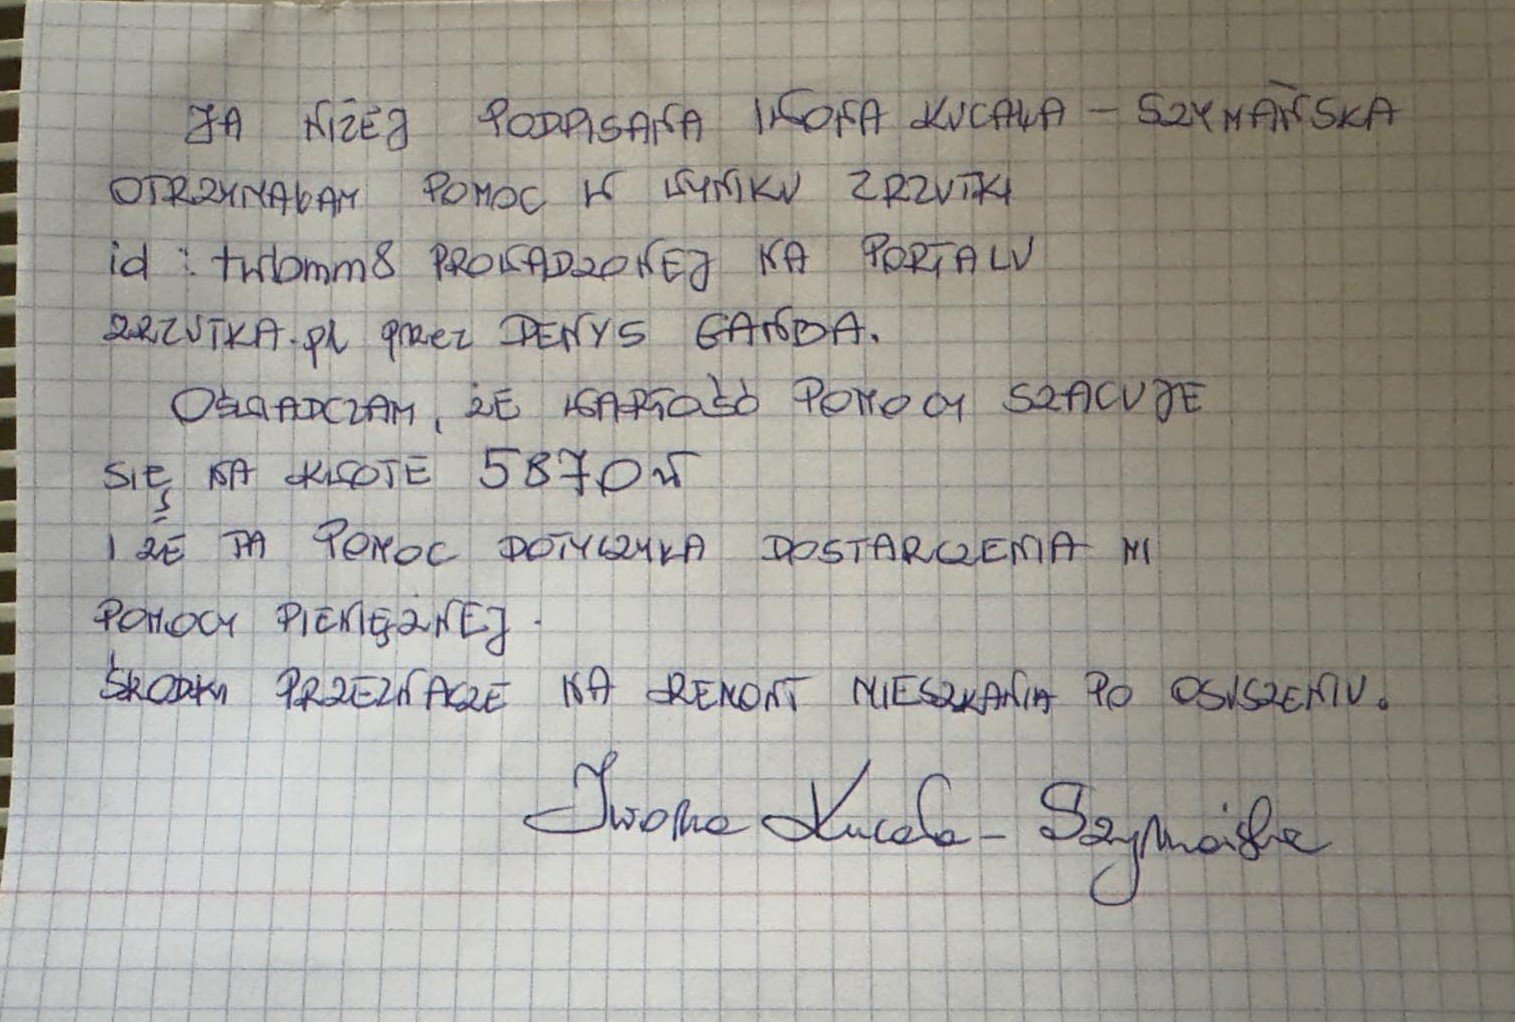 JA NIŻEJ PODPISANA IWONA KUCAŁA - SZYMAŃSKA
OTRZYMAŁAM POMOC W WYNIKU ZRZUTKI
id : twbmm8 PROWADZONEJ NA PORTALU
ZRZUTKA.pl przez DENYS GANDA.
OŚWIADCZAM, ŻE WARTOŚĆ POMOCY SZACUJE
SIĘ NA KWOTĘ 5870 zł
I ŻE TA POMOC DOTYCZYŁA DOSTARCZENIA MI
POMOCY PIENIĘŻNEJ.
ŚRODKI PRZEZNACZĘ NA REMONT MIESZKANIA PO OSUSZENIU.
Iwona Kucała - Szymańska